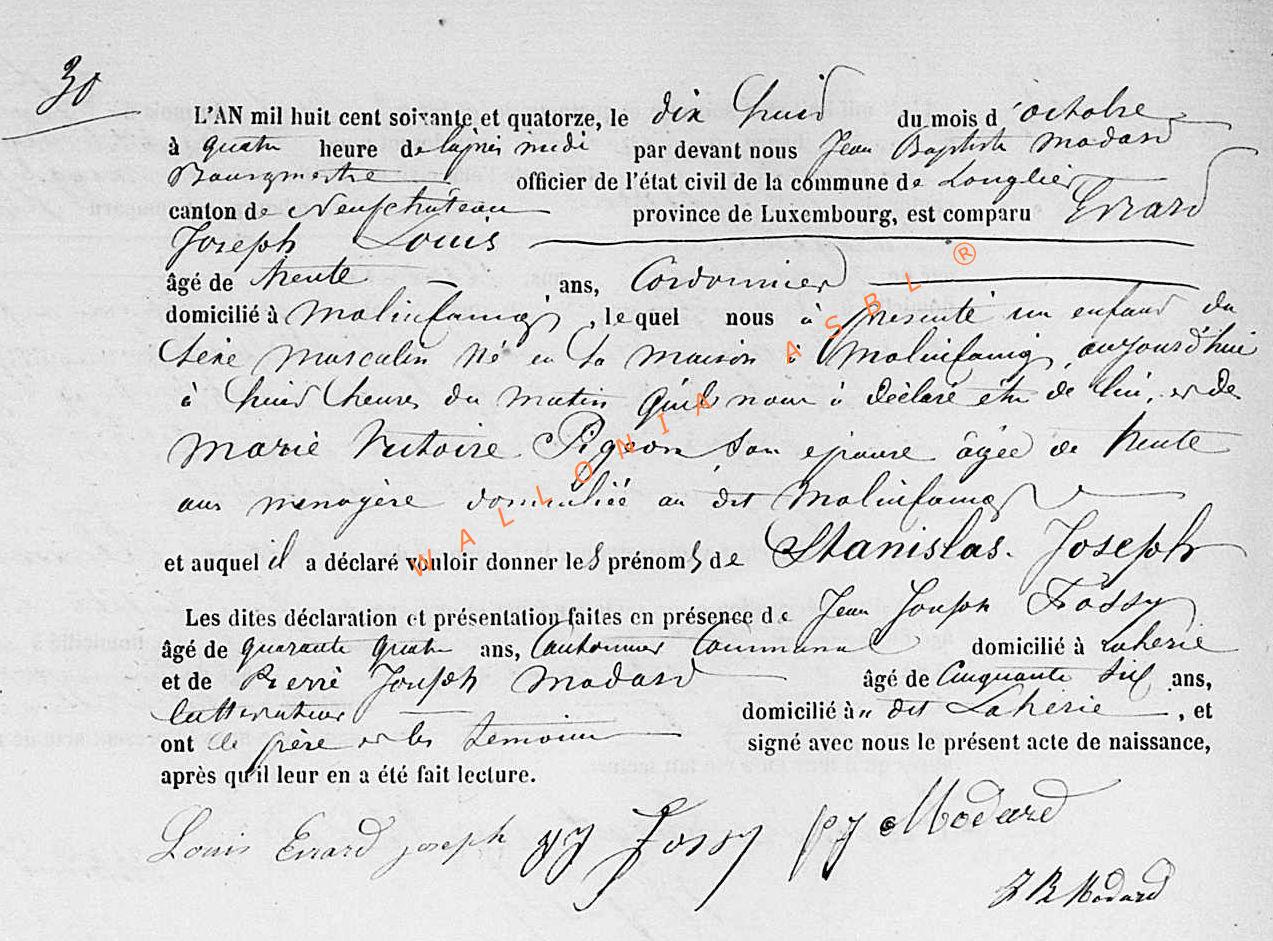 30
L'AN mil huit cent soixante et quatorze, le dix huit du mois d'octobre
à quatre heure de l'après midi par devant nous Jean Baptiste Modard
Bourgmestre officier de l'état civil de la commune de Longlier
canton de Neufchâteau province de Luxembourg, est comparu Errard
Joseph Louis
âgé de trente ans, Cordonnier
domicilié à Molinfaing, lequel nous à présenté un enfant du
sexe masculin né en sa maison à Molinfaing aujourd'hui
à huit heures du matin qu'il nous à déclaré être de lui, et de
Marie Victoire Pigeon son epouse âgée de trente
ans menagère domiciliée au dit Molinfaing
et auquel il a déclaré vouloir donner les prénoms de Stanislas. Joseph
Les dites déclaration et présentation faites en présence de Jean Joseph Fossy
âgé de quarante quatre ans, Cantonnier Communal domicilié à Laherie
et de Pierre Joseph Modard âgé de Cinquante six ans,
Cultivateur domicilié à dit Laherie, et
ont le père et les temoins signé avec nous le présent acte de naissance,
après qu'il leur en a été fait lecture.
Louis Errard joseph JJ Fossy PJ Modard
J B Modard
WALLONIA ASBL ®